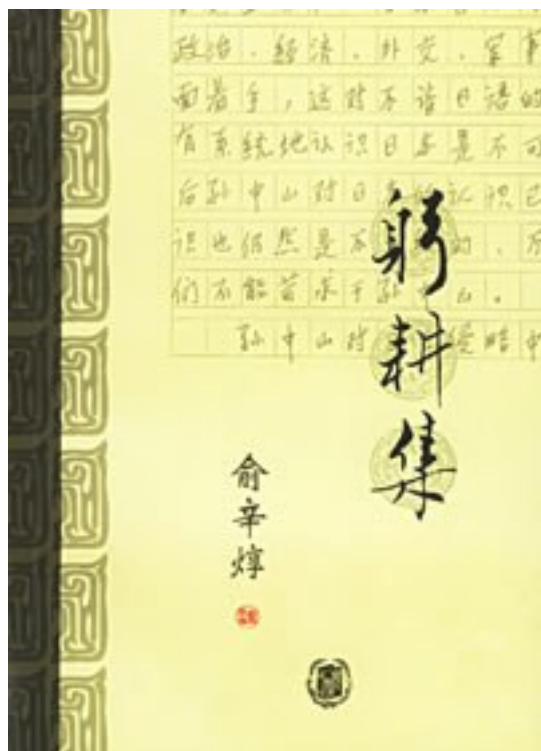 政治、经济、外交、军事
面着手,这对不谙日语的
有系统地认识日本是不可
后孙中山对日本的认识已
识也仍然是不
们不能苛求于孙中山。
孙中山对 侵略中
躬耕集
俞辛焞